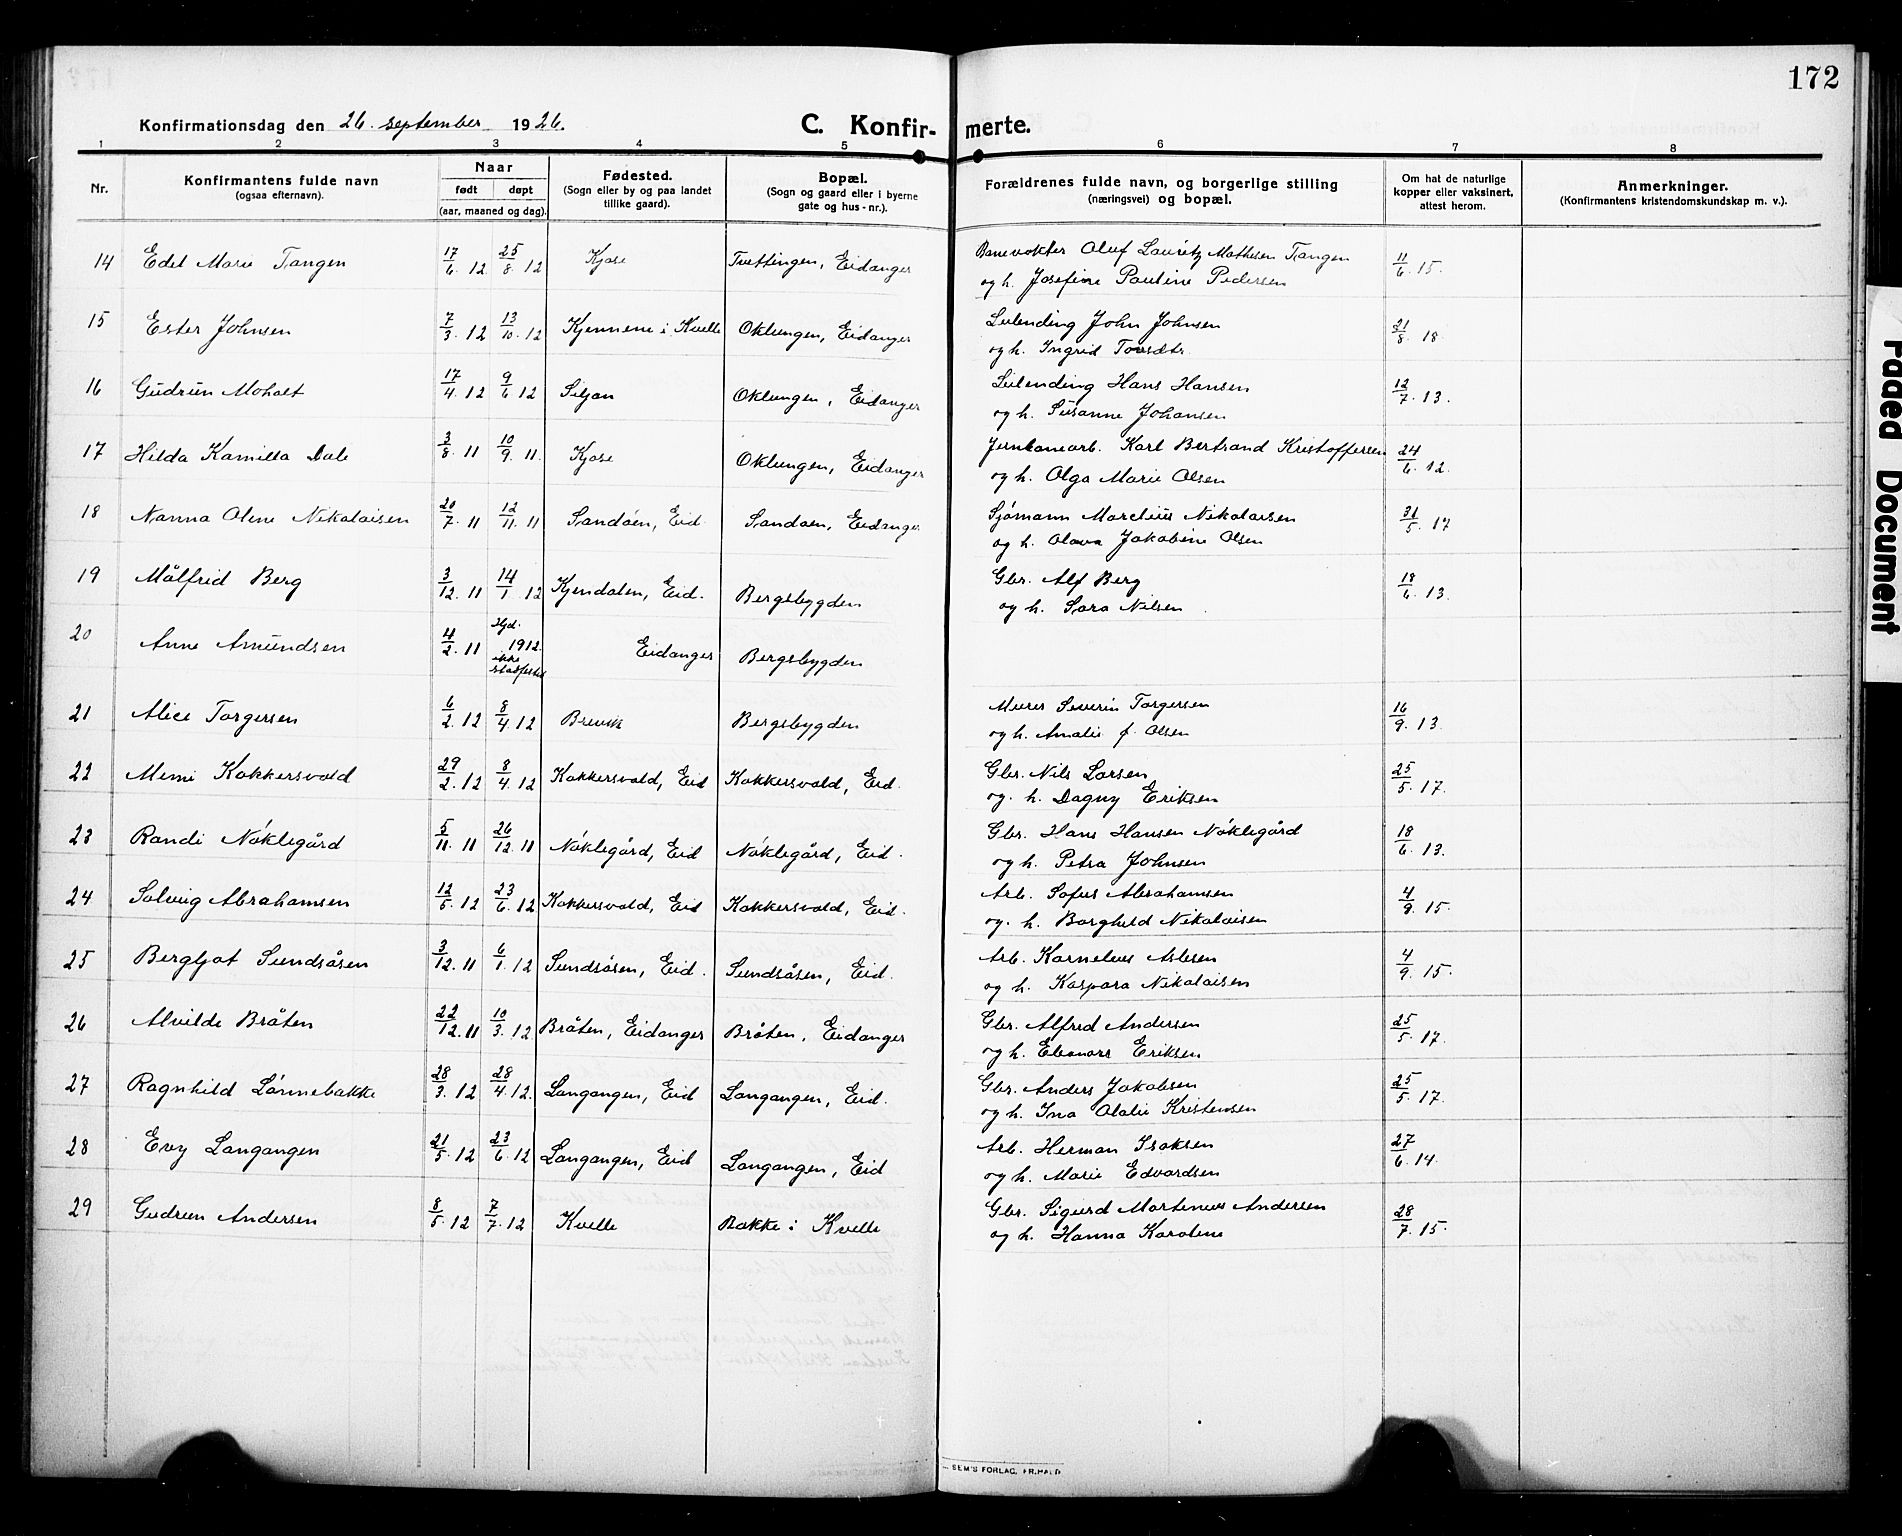 172
Konfirmationsdag den 26. september 1926.
C. Konfir- merte.
1 2 3 4 5 6 7 8
Nr.
Konfirmantens fulde navn
(ogsaa efternavn).
Naar
født døpt
(aar, maaned og dag).
Fødested.
(Sogn eller by og paa landet
tillike gaard).
Bopæl.
(Sogn og gaard eller i byerne
gate og hus-nr.).
Forældrenes fulde navn, og borgerlige stilling
(næringsvei) og bopæl.
Om hat de naturlige
kopper eller vaksinert,
attest herom.
Anmerkninger.
(Konfirmantens kristendomskundskap m. v.).
14 Edel Marie Tangen 17/6. 12 25/8. 12 Kjose Tvettingen, Eidanger Banevokter Oluf Lauritz Mathisen Tangen 11/6. 15.
og h. Josefine Pauline Pedersen
15 Ester Johnsen 7/3. 12 13/10. 12 Kjennene i Kvelle Oklungen, Eidanger Leilending John Johnsen 21/8. 18.
og h. Ingrid
16 Gudrun Moholt 17/4. 12 9/6. 12 Siljan Oklungen, Eidanger Leilending Hans Hansen 12/7. 13.
og h. Susanne Johansen
17 Hilda Kamilla Dale 3/8. 11 10/9. 11. Kjose Oklungen, Eidanger Jernbanearb. Karl Bertrand Kristoffersen 24/6. 12.
og h. Olga Marie Olsen
18 Nanna Olene Nikolaisen 20/7. 11 12/11. 11 Sandøen, Eid. Sandøen, Eidanger Sjømann Marelius Nikolaisen 31/5. 17
og h. Olava Jakobine Olsen
19 Målfrid Berg 3/12. 11 14/1. 12 Kjendalen, Eid. Bergsbygden Gbr. Alf Berg 18/6. 13.
og h. Sara Nilsen
20 Anne Amundsen 4/2. 11 Hjd. 1912. Eidanger Bergsbygden
ikke
stadfestet
21 Alice Torgersen 6/2. 12 8/4. 12 Brevik Bergsbygden Murer Severin Torgersen 16/9. 13.
og h. Amalie f. Olsen
22 Mimi Kokkersvold 29/2. 12 8/4. 12 Kokkersvold, Eid Kokkersvold, Eid. Gbr. Nils Larsen 25/5. 17.
og h. Dagny Eriksen
23 Randi Nöklegård 5/11. 11 26/12. 11 Nöklegård, Eid Nöklegård, Eid. Gbr. Hans Hansen Nöklegård 18/6. 13.
og h. Petra Johnsen
24 Solveig Abrahamsen 12/5. 12 23/6. 12 Kokkersvold, Eid Kokkersvold, Eid. Arb. Sofus Abrahamsen 4/9. 15.
og h. Borghild Nikolaisen
25 Bergljot Sundsåsen 3/12. 11 6/1. 12 Sundsåsen, Eid. Sundsåsen, Eid. Arb. Kornelius Aslesen 4/9. 15.
og h. Kaspara Nikolaisen
26 Alvilde Bråten 22/12. 11 10/3. 12 Bråten, Eidanger Bråten, Eidanger Gbr. Alfred Andersen 25/5. 17.
og h. Eleonore Eriksen
27 Ragnhild Lønnebakke 28/3. 12 28/4. 12. Langangen, Eid Langangen, Eid. Gbr. Anders Jakobsen 25/5. 17.
og h. Ina Olalie Kristensen
28 Evy Langangen 21/5. 12 23/6. 12 Langangen, Eid Langangen, Eid Arb. Herman Isaksen 27/6. 14.
og h. Marie Edvardsen
29 Gudrun Andersen 8/5. 12 7/7. 12 Kvelle Bakke i Kvelle Gbr. Sigurd Martinius Andersen 28/7. 15.
og h. Hanna Karoline
SEM'S FORLAG, FR.HALD
Faded Document